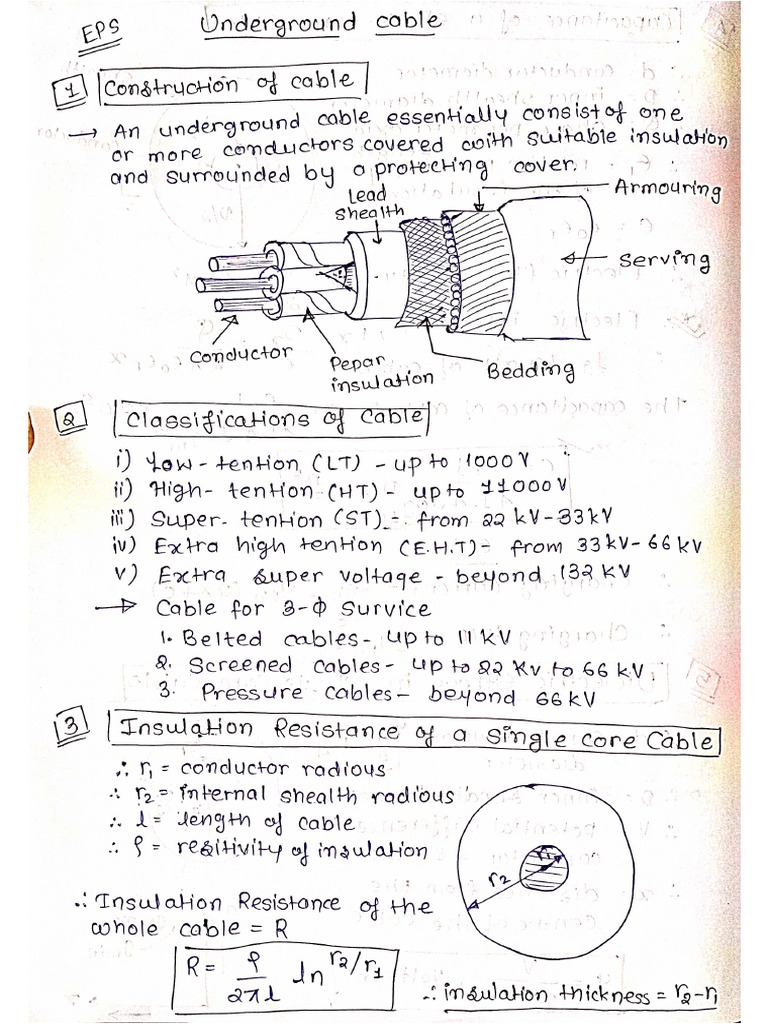 EPS
Underground cable
1 Construction of cable
→ An underground cable essentially consist of one
or more conductors covered with suitable insulation
and surrounded by a protecting cover.
Lead
shealth
Armouring
Serving
Conductor
Pepar
insulation
Bedding
2 Classifications of Cable
i) Low-tention (LT) - up to 1000V
ii) High-tention (HT) - up to 11000V
iii) Super-tention (ST) - from 22 kV-33kV
iv) Extra high tention (E.H.T) - from 33kV-66kV
v) Extra super voltage - beyond 132 kV
→ Cable for 3-Φ Survice
1. Belted cables - up to 11 kV
2. Screened cables - up to 22 Kv to 66 kV.
3. Pressure cables - beyond 66 kV
3 Insulation Resistance of a single core Cable
∴ r1 = conductor radious
∴ r2 = internal shealth radious
∴ l = length of cable
∴ ρ = resitivity of insulation
r1
r2
∴ Insulation Resistance of the
whole cable = R
R = ρ/2πl ln r2/r1
∴ insulation thickness = r2-r1